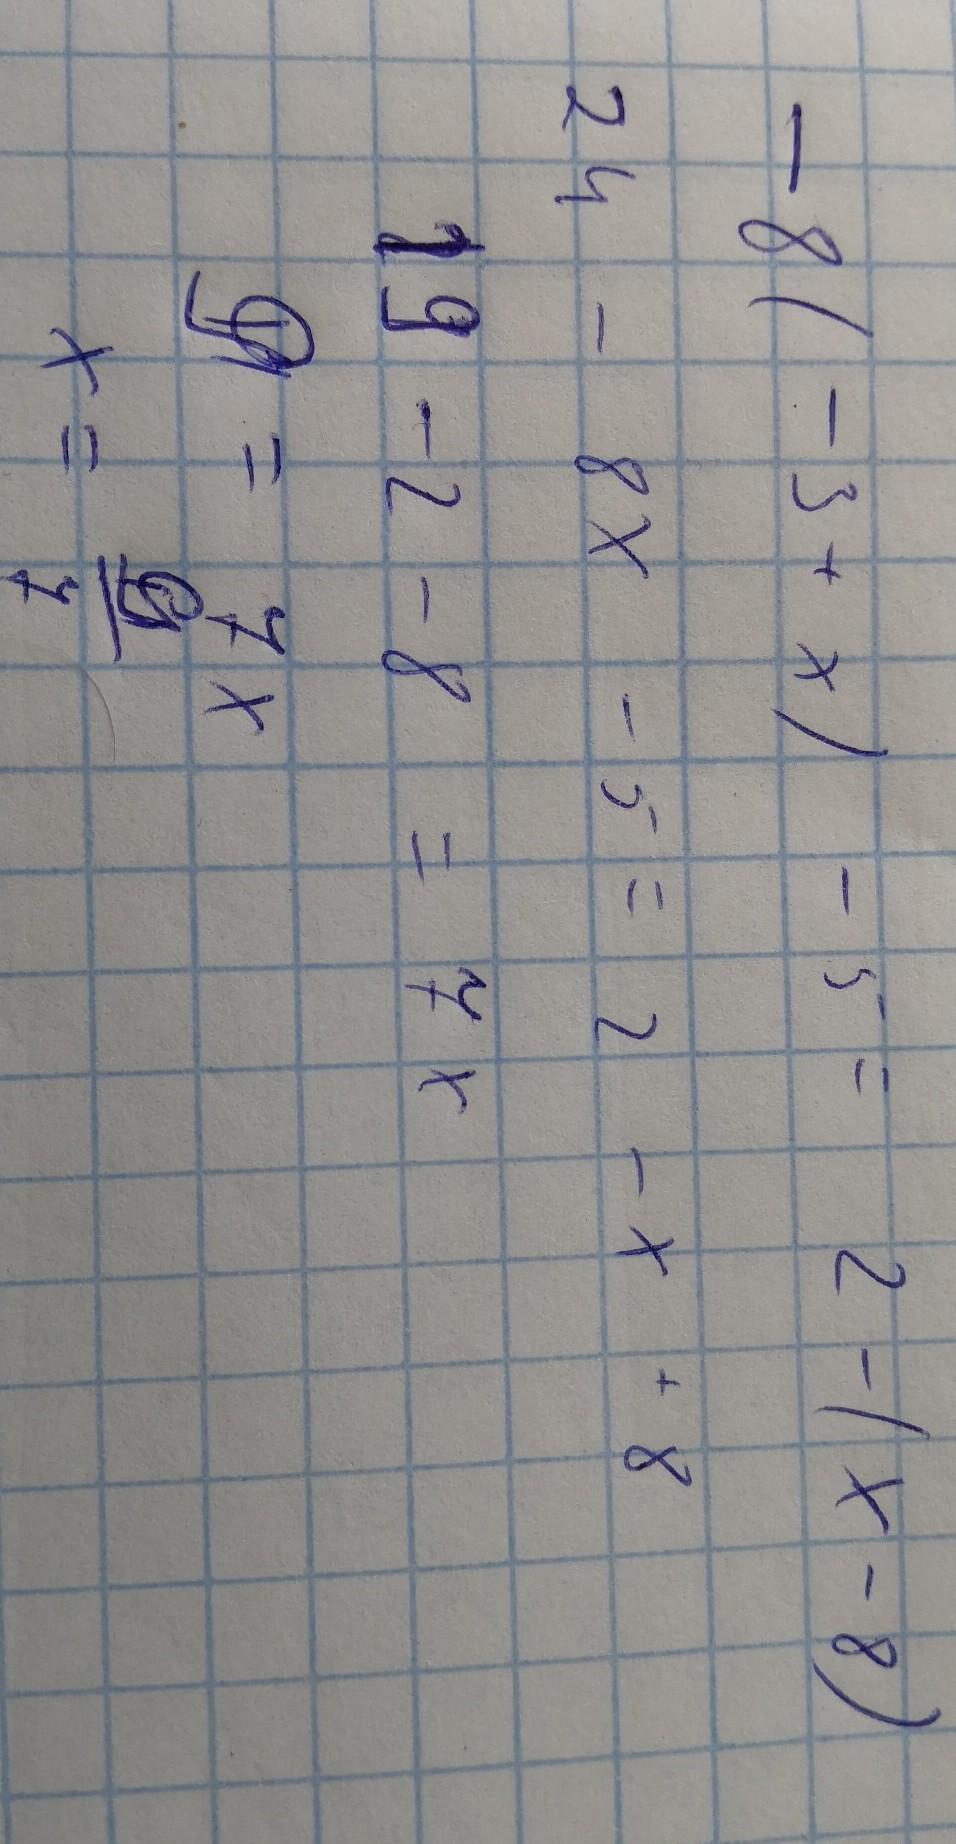 -8(-3+x) -5= 2-(x-8)
24 - 8x -5= 2 -x +8
19 -2 -8 = 7x
9 = 7x
x = 9/7